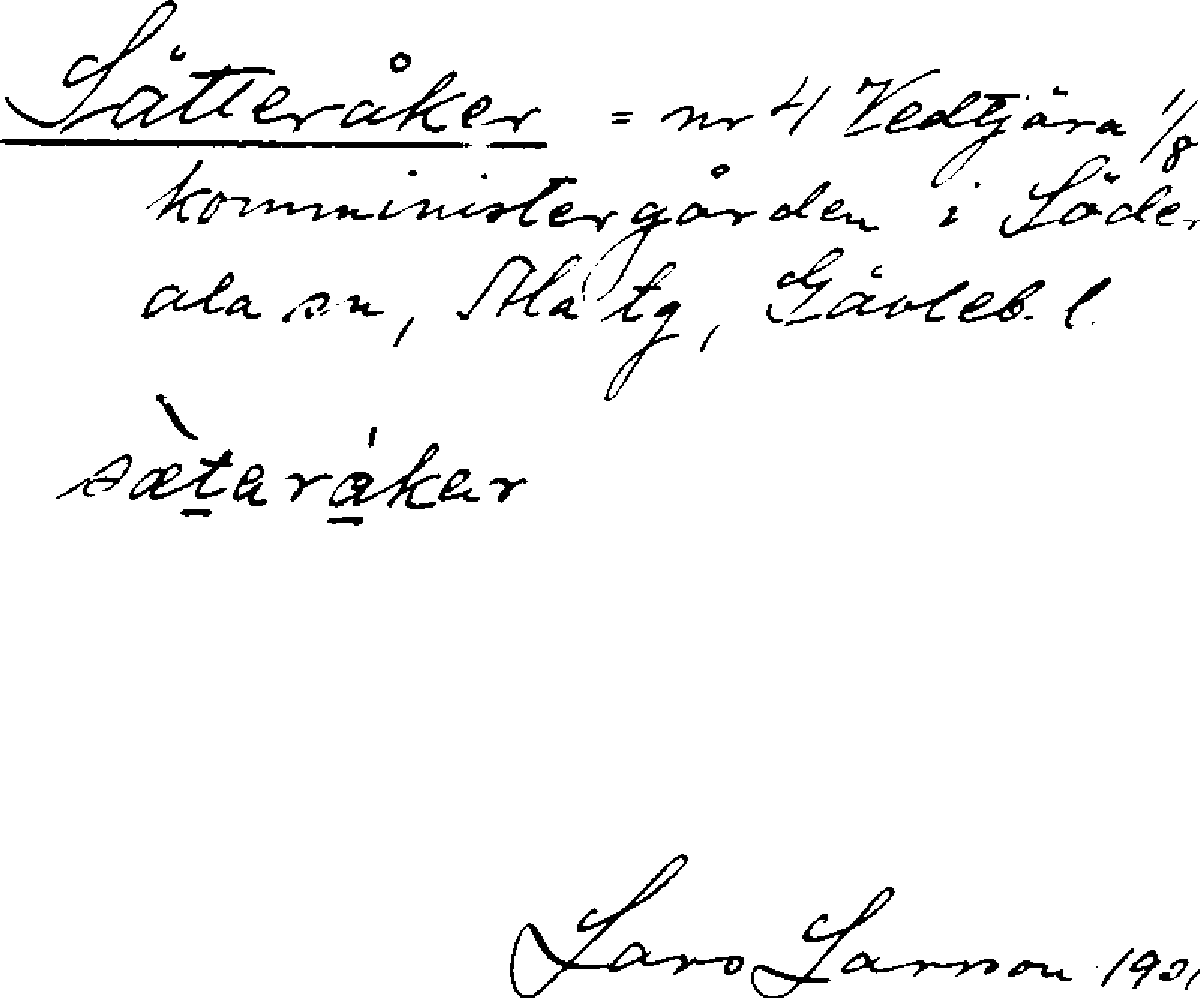 Sätteråker = nr 4 Vedtjära 1/8
komministergården i Söder
ala sn, Ala tg, Gävleb. l.
sæ̀taråkar
Lars Larsson